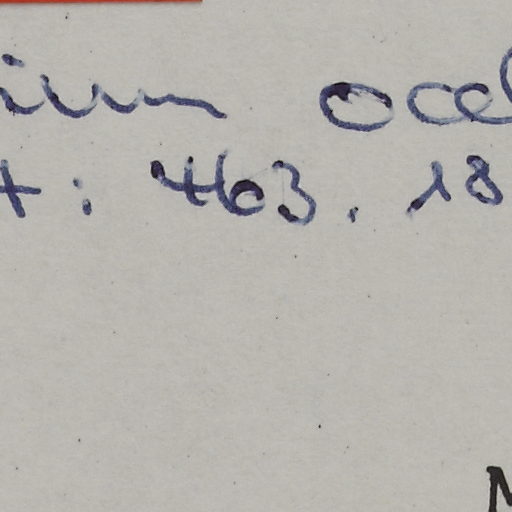 ium oce
t: 463. 18
M